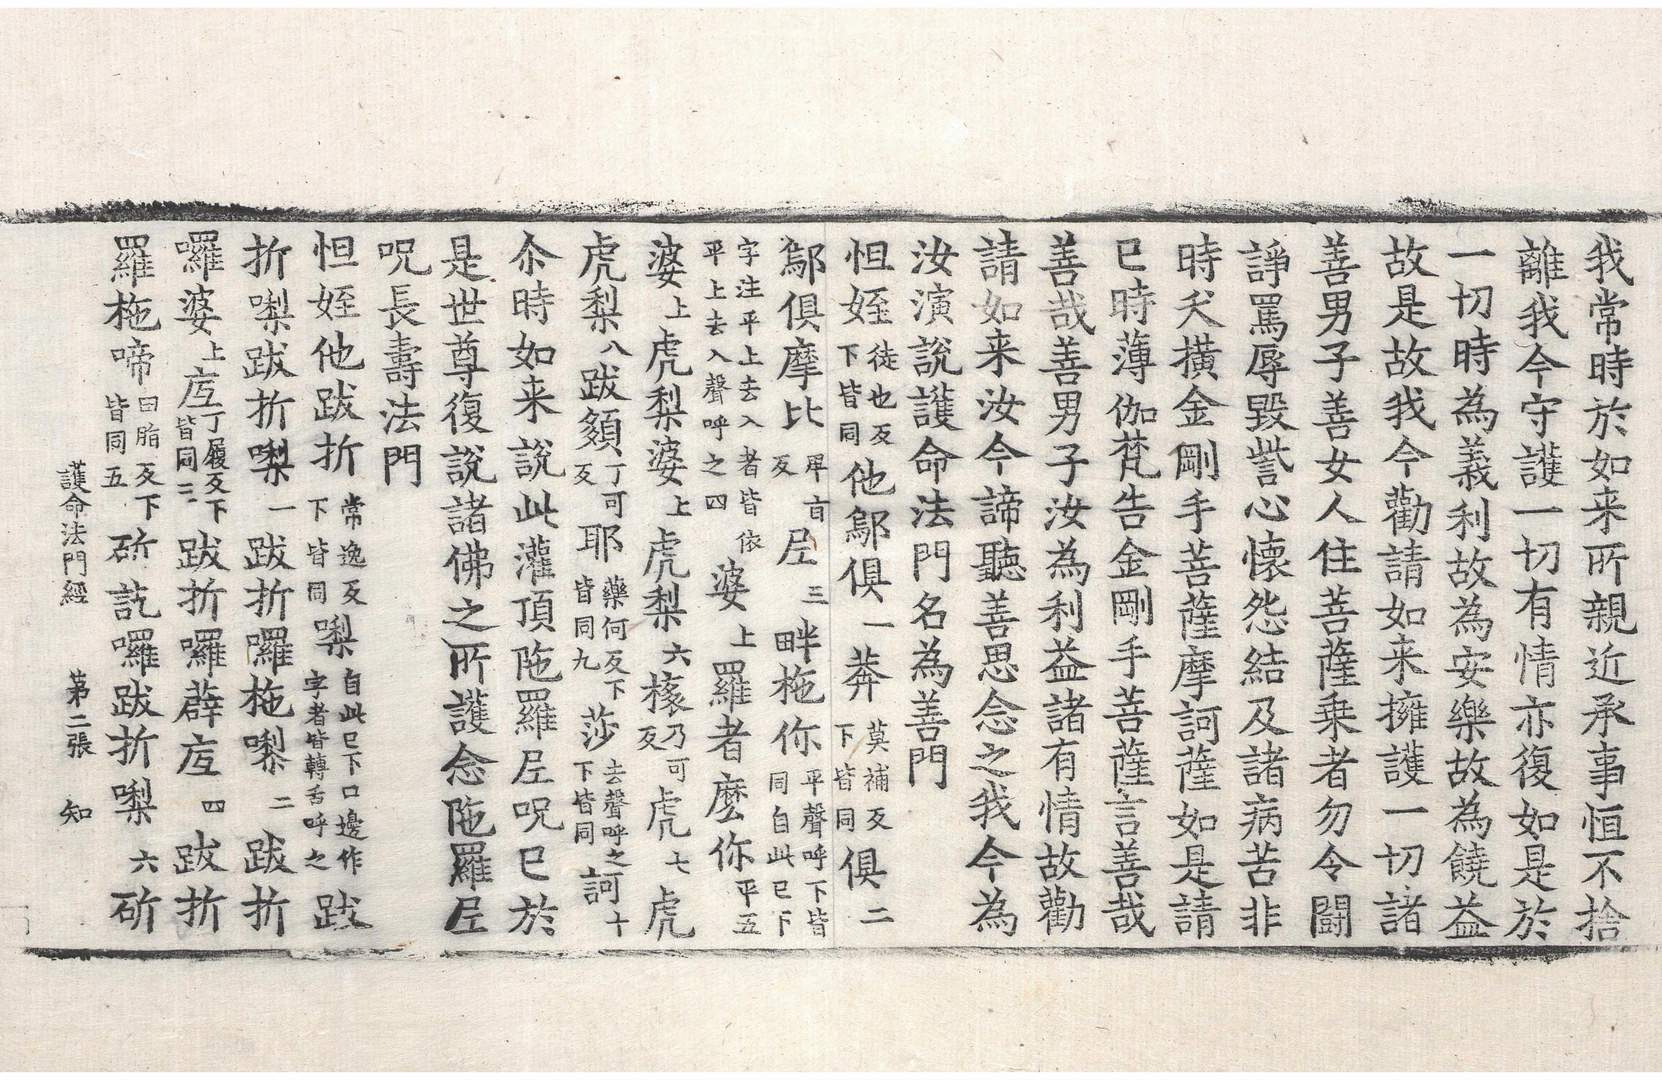 我常時於如来所親近承事恒不捨
離我今守護一切有情亦復如是於
一切時為義利故為安樂故為饒益
故是故我今勸請如来擁護一切諸
善男子善女人住菩薩乗者勿令鬪
諍罵辱毀呰心懷怨結及諸病苦非
時夭橫金剛手菩薩摩訶薩如是請
巳時薄伽梵告金剛手菩薩言善哉
善哉善男子汝為利益諸有情故勸
請如来汝今諦聽善思念之我今為
汝演說護命法門名為善門
怛姪徒也反下皆同他鄔俱一莾莫補反下皆同俱二
鄔俱摩比反𠀤尼三畔柂你平聲呼下皆同自此巳下
字注平上去入者皆依平上去入聲呼之四婆上羅者麽你平五
婆上虎梨婆上虎梨六㯃乃可反虎七虎
虎梨八跋䫂丁可反耶藥何反下皆同九莎去聲呼之下皆同訶十
尒時如来說此灌頂陁羅尼呪巳於
是世尊復說諸佛之所護念陁羅尼
呪長壽法門
怛姪他跋折常逸反下皆同㗚自此巳下口邊作字者皆轉舌呼之跋
折㗚跋折㗚一跋折囉柂㗚二跋折
囉婆上底丁履反下皆同三跋折囉薜底四跋折
羅柂啼田脂反下皆同五斫訖囉跋折㗚六斫
護命法門經 第二張 知